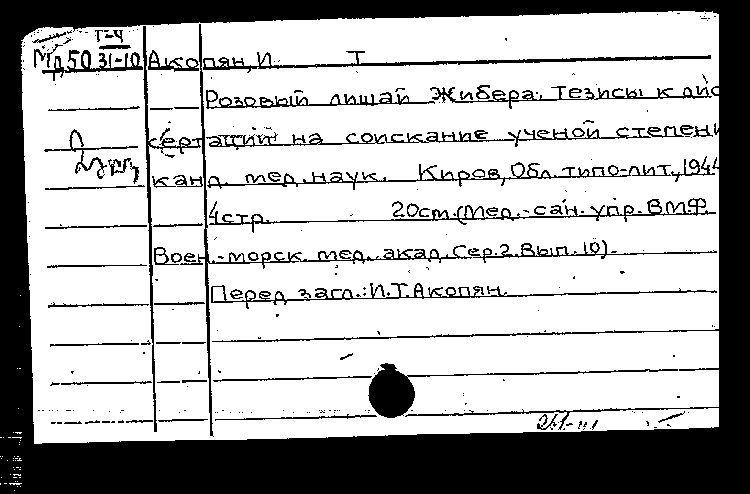 Т-4
Мд50 31-10 Акопян, И. Т
Розовый лишай Жибера. Тезисы к дис
сертации на соискание ученой степени
канд. мед. наук. Киров, Обл. типо-лит., 1944
4стр. 20см. (Мед.-сан. упр. ВМФ.
Воен.-морск. мед. акад. Сер. 2. Вып. 10).
Перед загл.: И.Т. Акопян.